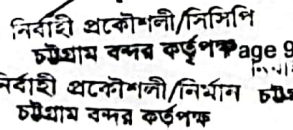 নির্বাহী প্রকৌশলী/নিসিপি
চট্টগ্রাম বন্দর কর্তৃপক্ষ age 9
নির্বাহী প্রকৌশলী/নির্মান
চট্টগ্রাম বন্দর কর্তৃপক্ষ